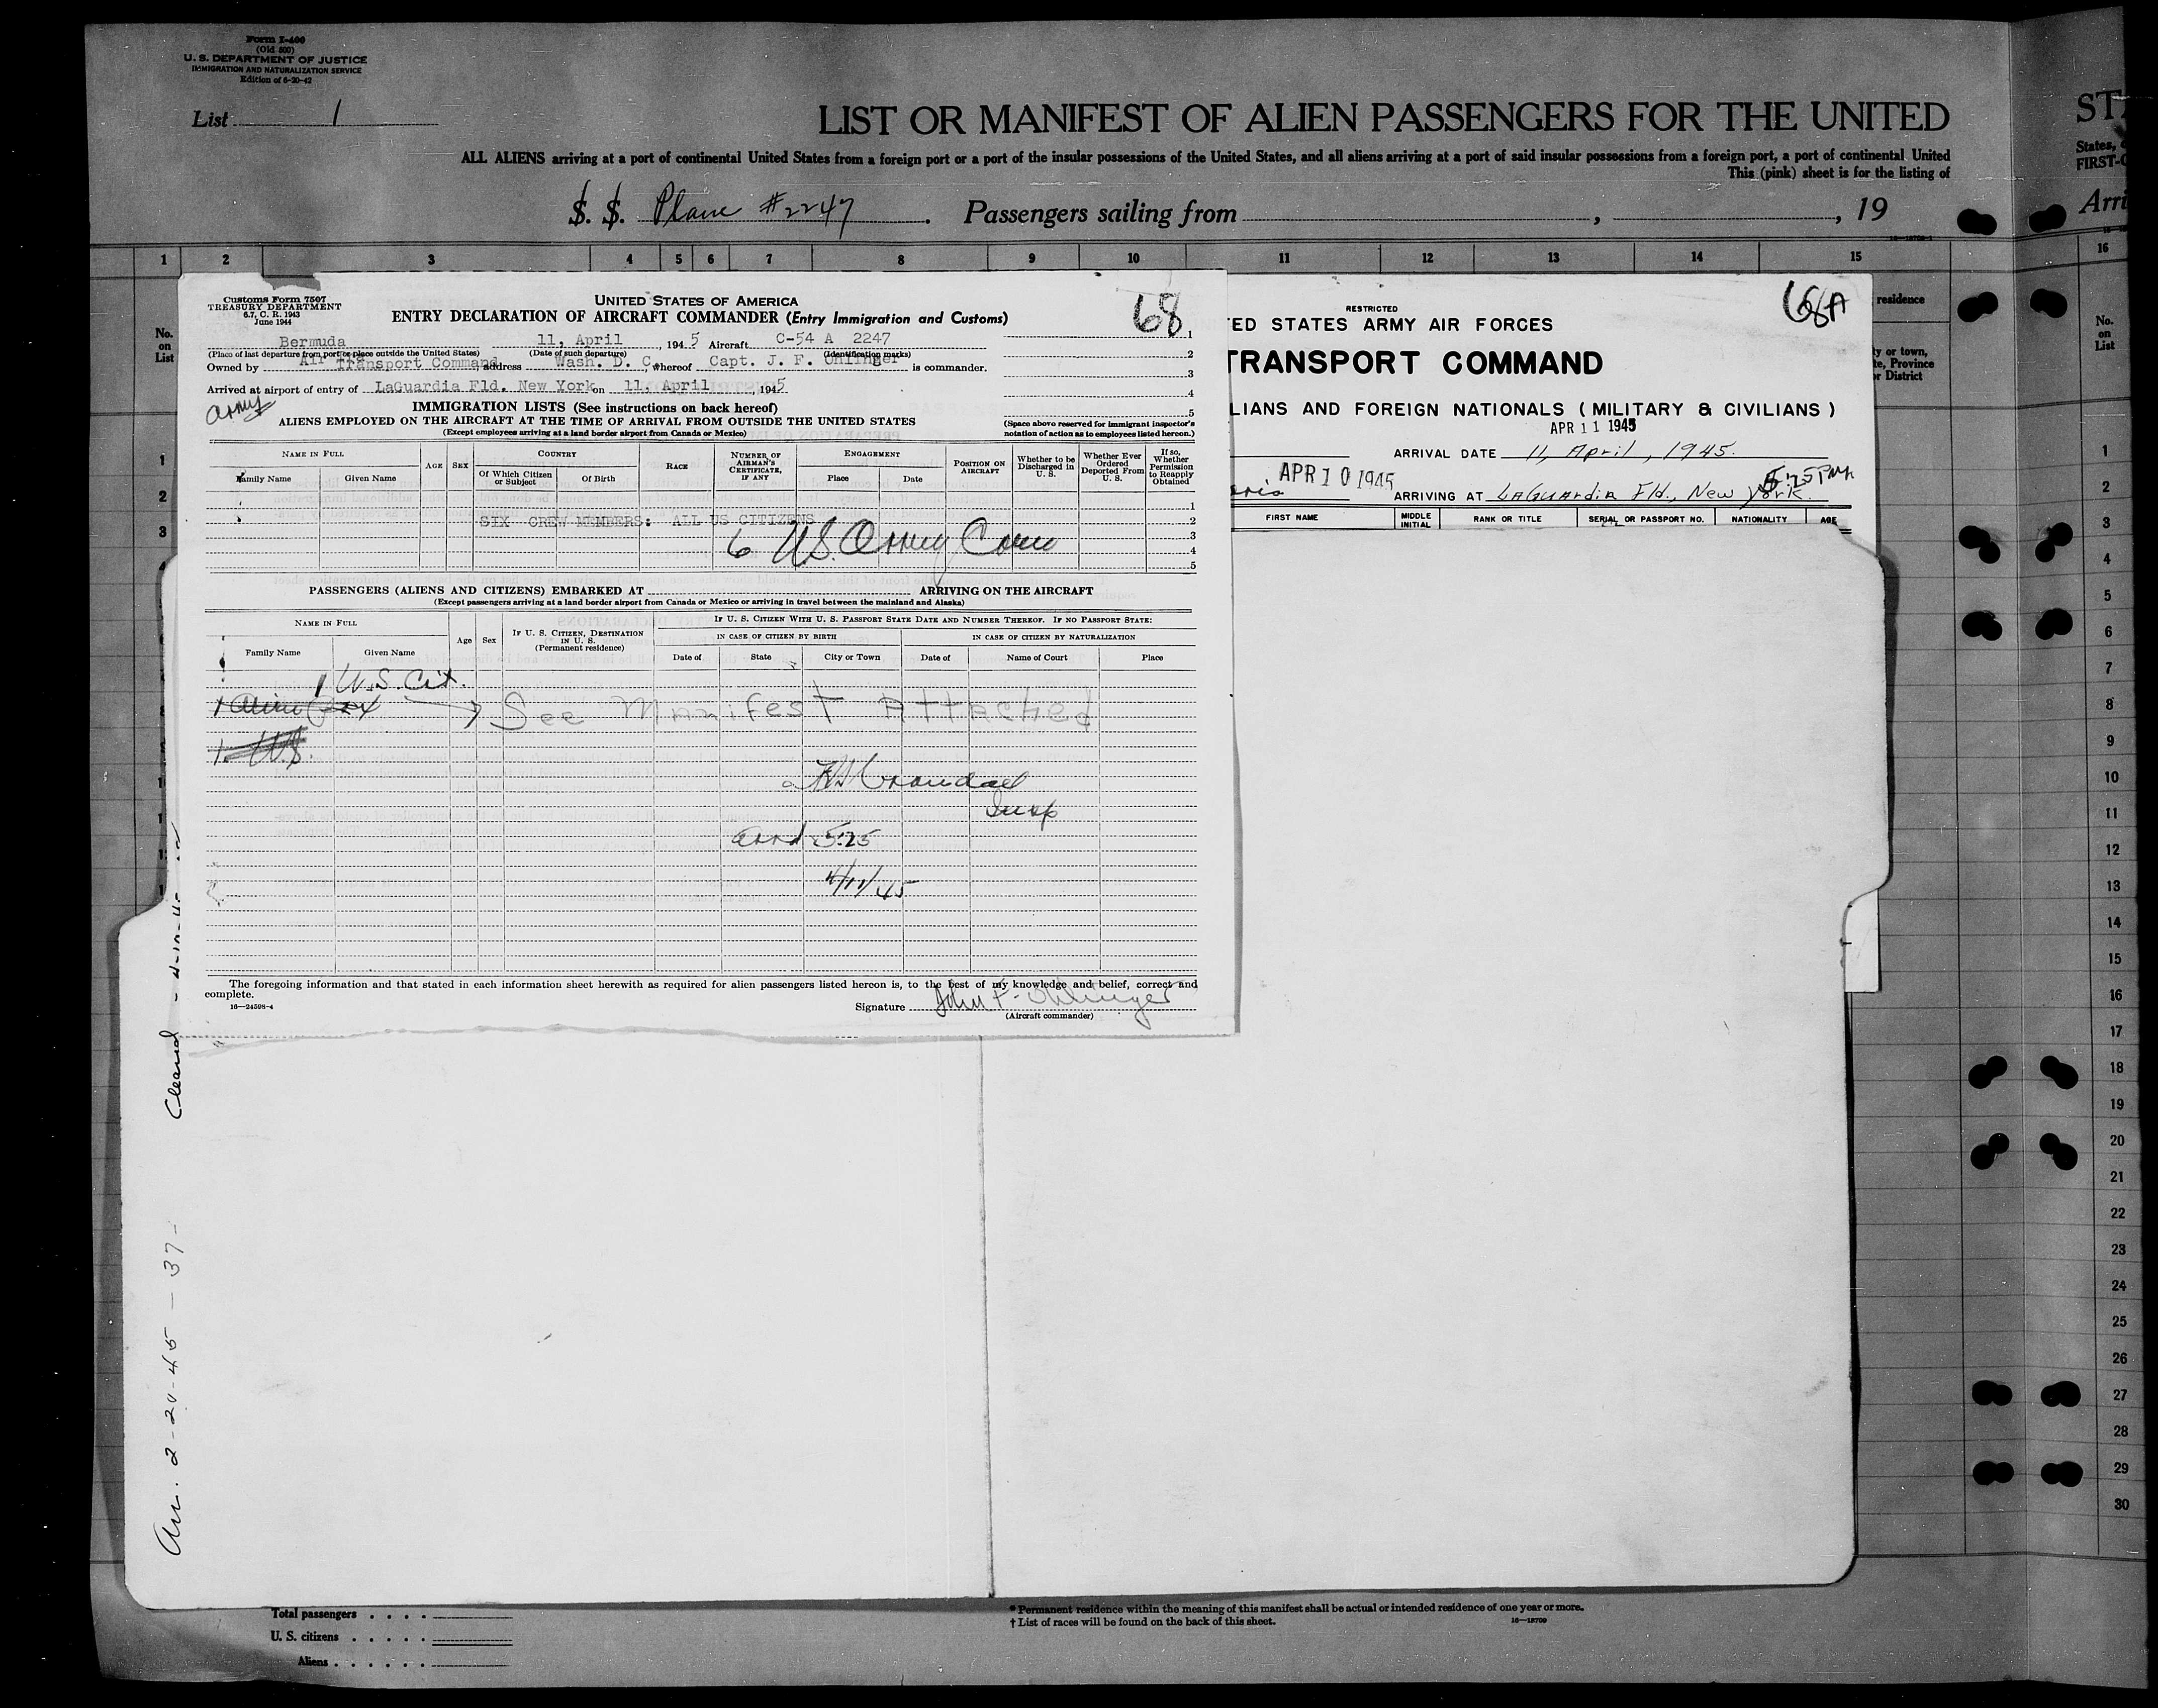 Form I-400
(Old 500)
U. S. DEPARTMENT OF JUSTICE
IMMIGRATION AND NATURALIZATION SERVICE
Edition of 6-20-42
List 1
LIST OR MANIFEST OF ALIEN PASSENGERS FOR THE UNITED
ALL ALIENS arriving at a port of continental United States from a foreign port or a port of the insular possessions of the United States, and all aliens arriving at a port of said insular possessions from a foreign port, a port of continental United
This (pink) sheet is for the listing of
S. S. Plane #2247. Passengers sailing from , , 19
ST
States,
FIRST-C
Arri
1 2 3 4 5 6 7 8 9 10 11 12 13 14 15 16
No. on List
Customs Form 7507
TREASURY DEPARTMENT
6.7, C. R. 1943
June 1944
UNITED STATES OF AMERICA
ENTRY DECLARATION OF AIRCRAFT COMMANDER (Entry Immigration and Customs)
68
Bermuda 11, April, 1945 Aircraft C-54 A 2247
(Place of last departure from port or place outside the United States) (Date of such departure) (Identification marks)
Owned by Air Transport Command, address Wash. D. C, whereof Capt. J. F. Ohlinger is commander.
Arrived at airport of entry of LaGuardia Fld. New York on 11, April, 1945
Army
1
2
3
4
5
IMMIGRATION LISTS (See instructions on back hereof)
ALIENS EMPLOYED ON THE AIRCRAFT AT THE TIME OF ARRIVAL FROM OUTSIDE THE UNITED STATES
(Except employees arriving at a land border airport from Canada or Mexico)
(Space above reserved for immigrant inspector's notation of action as to employees listed hereon.)
NAME IN FULL
Family Name Given Name
AGE SEX
COUNTRY
Of Which Citizen or Subject Of Birth
RACE
NUMBER OF AIRMAN'S CERTIFICATE, IF ANY
ENGAGEMENT
Place Date
POSITION ON AIRCRAFT
Whether to be Discharged in U. S.
Whether Ever Ordered Deported From U. S.
If so, Whether Permission to Reapply Obtained
1
2
3
4
5
SIX CREW MEMBERS: ALL US CITIZENS
6 U.S. Army Crew
PASSENGERS (ALIENS AND CITIZENS) EMBARKED AT ARRIVING ON THE AIRCRAFT
(Except passengers arriving at a land border airport from Canada or Mexico or arriving in travel between the mainland and Alaska)
NAME IN FULL
Family Name Given Name
Age Sex
IF U. S. CITIZEN, DESTINATION IN U. S.
(Permanent residence)
IF U. S. CITIZEN WITH U. S. PASSPORT STATE DATE AND NUMBER THEREOF. IF NO PASSPORT STATE:
IN CASE OF CITIZEN BY BIRTH IN CASE OF CITIZEN BY NATURALIZATION
Date of State City or Town Date of Name of Court Place
1 U.S. Cit.
1 Alien
See Manifest Attached
1 U.S.
Crandall
Insp
arrd 5:25
4/11/45
The foregoing information and that stated in each information sheet herewith as required for alien passengers listed hereon is, to the best of my knowledge and belief, correct and
complete.
16—24598-4
Signature John F. Ohlinger
(Aircraft commander)
RESTRICTED
68A
TED STATES ARMY AIR FORCES
TRANSPORT COMMAND
LIANS AND FOREIGN NATIONALS (MILITARY & CIVILIANS)
APR 11 1945
ARRIVAL DATE 11, April, 1945.
APR 10 1945
5:25 PM
ARRIVING AT LaGuardia Fld., New York.
FIRST NAME MIDDLE INITIAL RANK OR TITLE SERIAL OR PASSPORT NO. NATIONALITY AGE
residence
y or town,
te, Province
or District
No. on List
1
2
3
1
2
3
4
5
6
7
8
9
10
11
12
13
14
15
16
17
18
19
20
21
22
23
24
25
26
27
28
29
30
Arr. 2-20-45 - 37-
Total passengers
U. S. citizens
Aliens
* Permanent residence within the meaning of this manifest shall be actual or intended residence of one year or more.
† List of races will be found on the back of this sheet.
16—18709